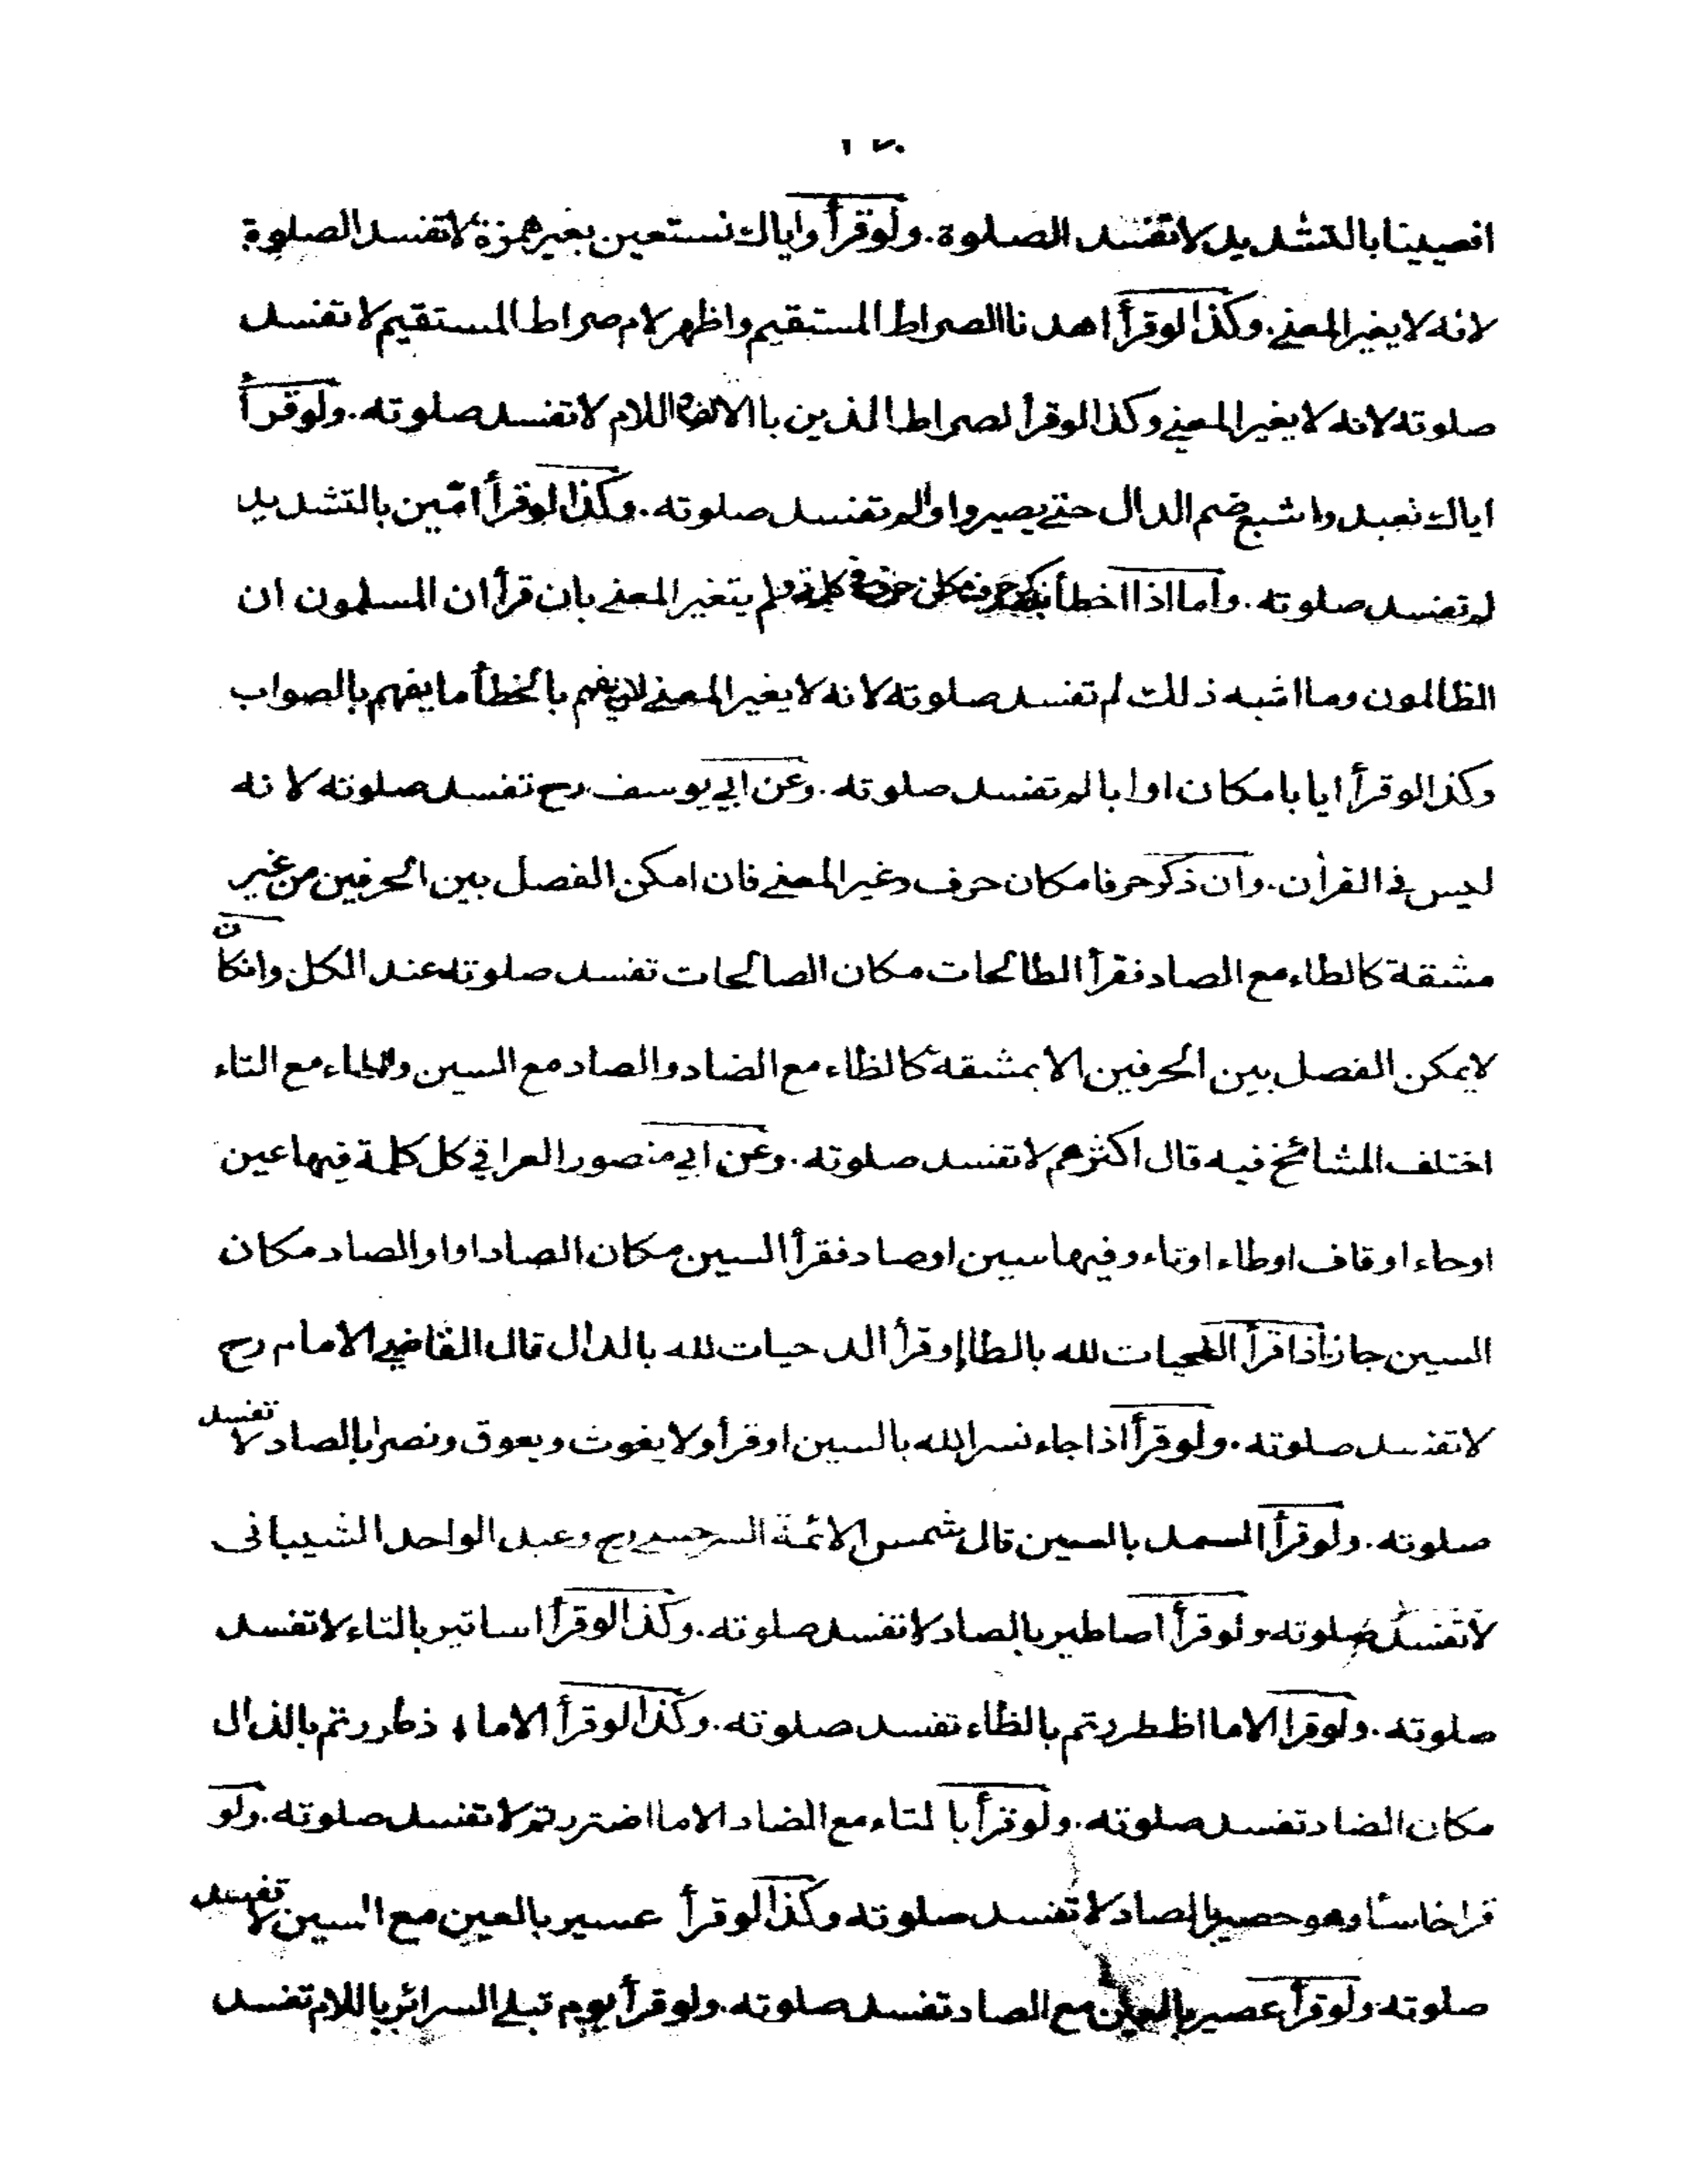 ١٢٠
افعيينا بالتشديد لا تفسد الصلوة. ولو قرأ واياك نستعين بغير همزة لا تفسد الصلوة
لانه لا يغير المعنى. وكذا لو قرأ اهدنا الصراط المستقيم واظهر لام صراط المستقيم لا تفسد
صلوته لانه لا يغير المعنى وكذا لو قرأ لصراط الذين بالالف واللام لا تفسد صلوته. ولو قرأ
اياك نعبد واشبع ضم الدال حتى يصير واوا لم تفسد صلوته. وكذا لو قرأ امّين بالتشديد
لم تفسد صلوته. واما اذا اخطأ بذكر حرف مكان حرف في كلمة ولم يتغير المعنى بان قرأ ان المسلمون ان
الظالمون وما اشبه ذلك لم تفسد صلوته لانه لا يغير المعنى لانه يفهم بالخطأ ما يفهم بالصواب
وكذا لو قرأ ايابا مكان اوابا لم تفسد صلوته. وعن ابي يوسف رح تفسد صلوته لانه
ليس في القرأن. وان ذكر حرفا مكان حرف وغير المعنى فان امكن الفصل بين الحرفين من غير
مشقة كالطاء مع الصاد فقرأ الطالحات مكان الصالحات تفسد صلوته عند الكل وانكان
لايمكن الفصل بين الحرفين الا بمشقة كالظاء مع الضاد والصاد مع السين والطاء مع التاء
اختلف المشائخ فيه قال اكثرهم لا تفسد صلوته. وعن ابي منصور العراقي كل كلمة فيها عين
اوحاء او قاف اوطاء اوتاء وفيها سين اوصاد فقرأ السين مكان الصاد اواو الصاد مكان
السين جاز اذا قرأ الطحيات لله بالطا او قرأ الدحيات لله بالدال قال القاضي الامام رح
لا تفسد صلوته. ولو قرأ اذا جاء نسر الله بالسين او قرأ ولا يغوث ويعوق ونصرا بالصاد لا تفسد
صلوته. ولو قرأ السمد بالسين قال شمس الائمة السرخسي رح وعبد الواحد الشيبانى
لا تفسد صلوته ولو قرأ اصاطير بالصاد لا تفسد صلوته. وكذا لو قرأ اساتير بالتاء لا تفسد
صلوته. ولو قرا الا ما اظطررتم بالظاء تفسد صلوته. وكذا لو قرأ الا ما ذطررتم بالذال
مكان الضاد تفسد صلوته. ولو قرأ بالتاء مع الضاد الا ما اضتررتم لا تفسد صلوته. ولو
قرا خاسئا وهو حصير بالصاد لا تفسد صلوته وكذا لو قرأ عسير بالعين مع السين لا تفسد
صلوته ولو قرأ عصير بالعين مع الصاد تفسد صلوته. ولو قرأ يوم تبلى السرائر باللام تفسد